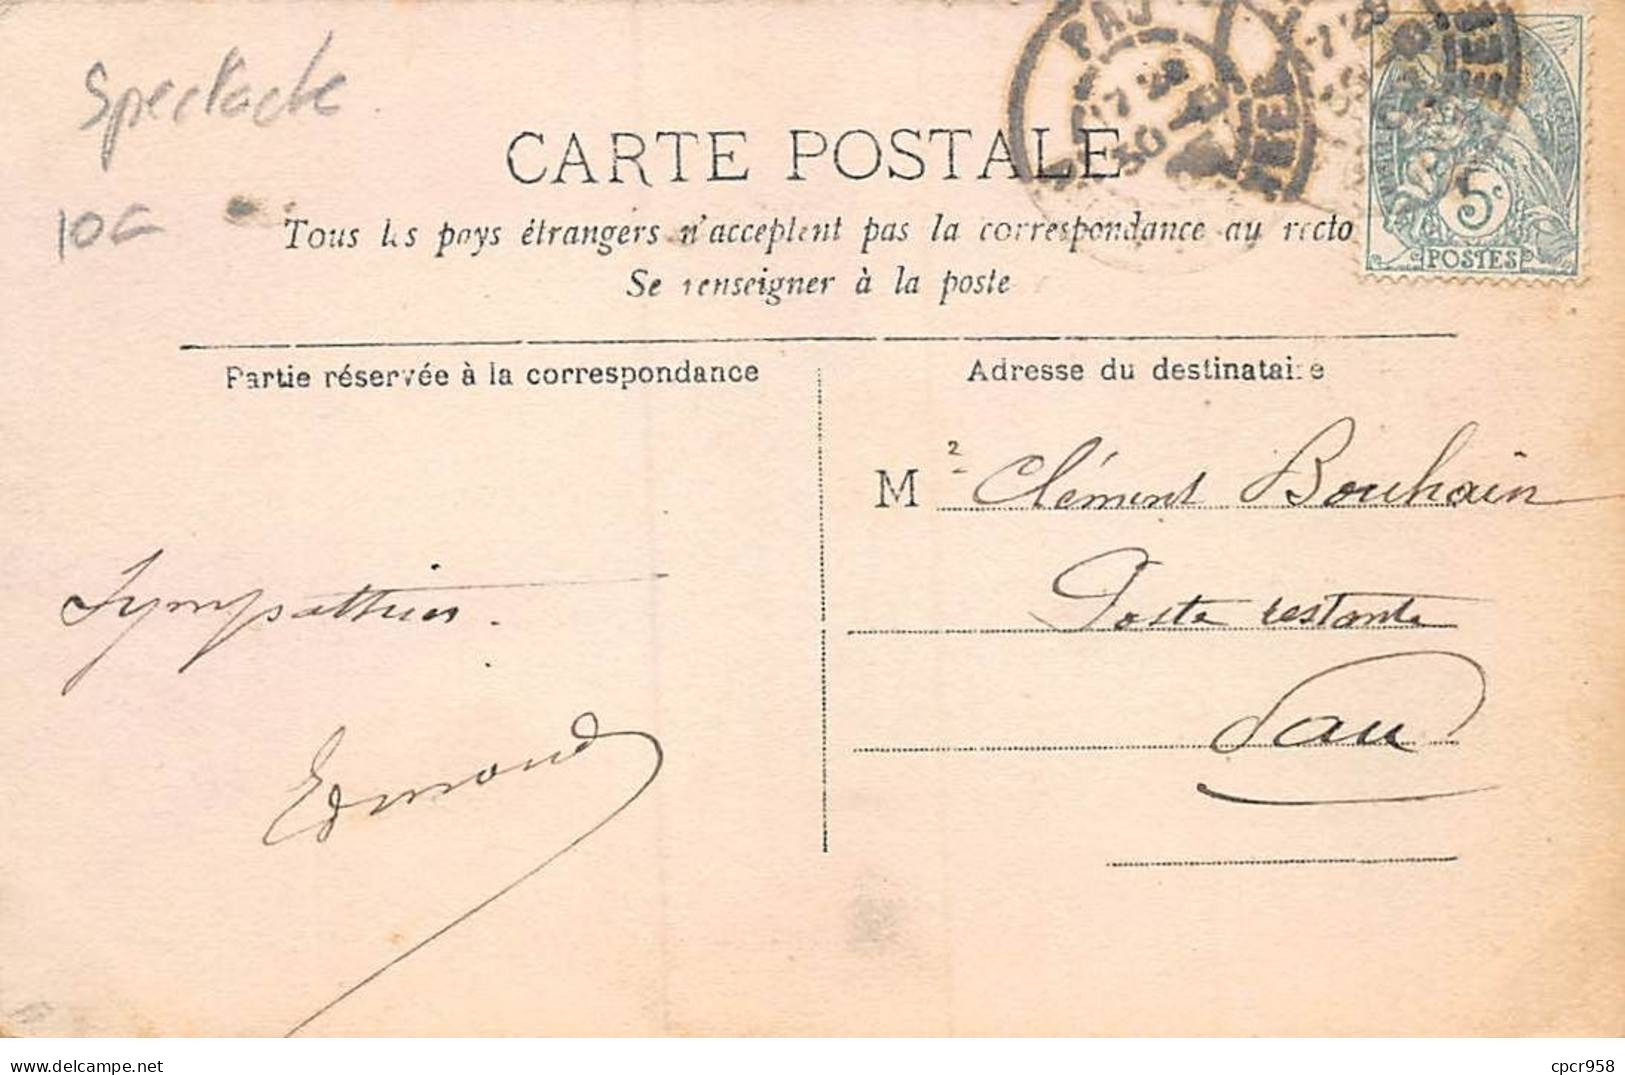 Spectacle
10€
CARTE POSTALE
Tous les pays étrangers n'acceptent pas la correspondance au recto
Se renseigner à la poste
PAU
17 28
30
5c
POSTES
Partie réservée à la correspondance
Adresse du destinataire
M Clément Bouhain
Poste restante
Pau
Sympathies.
Edmond
cpcr958